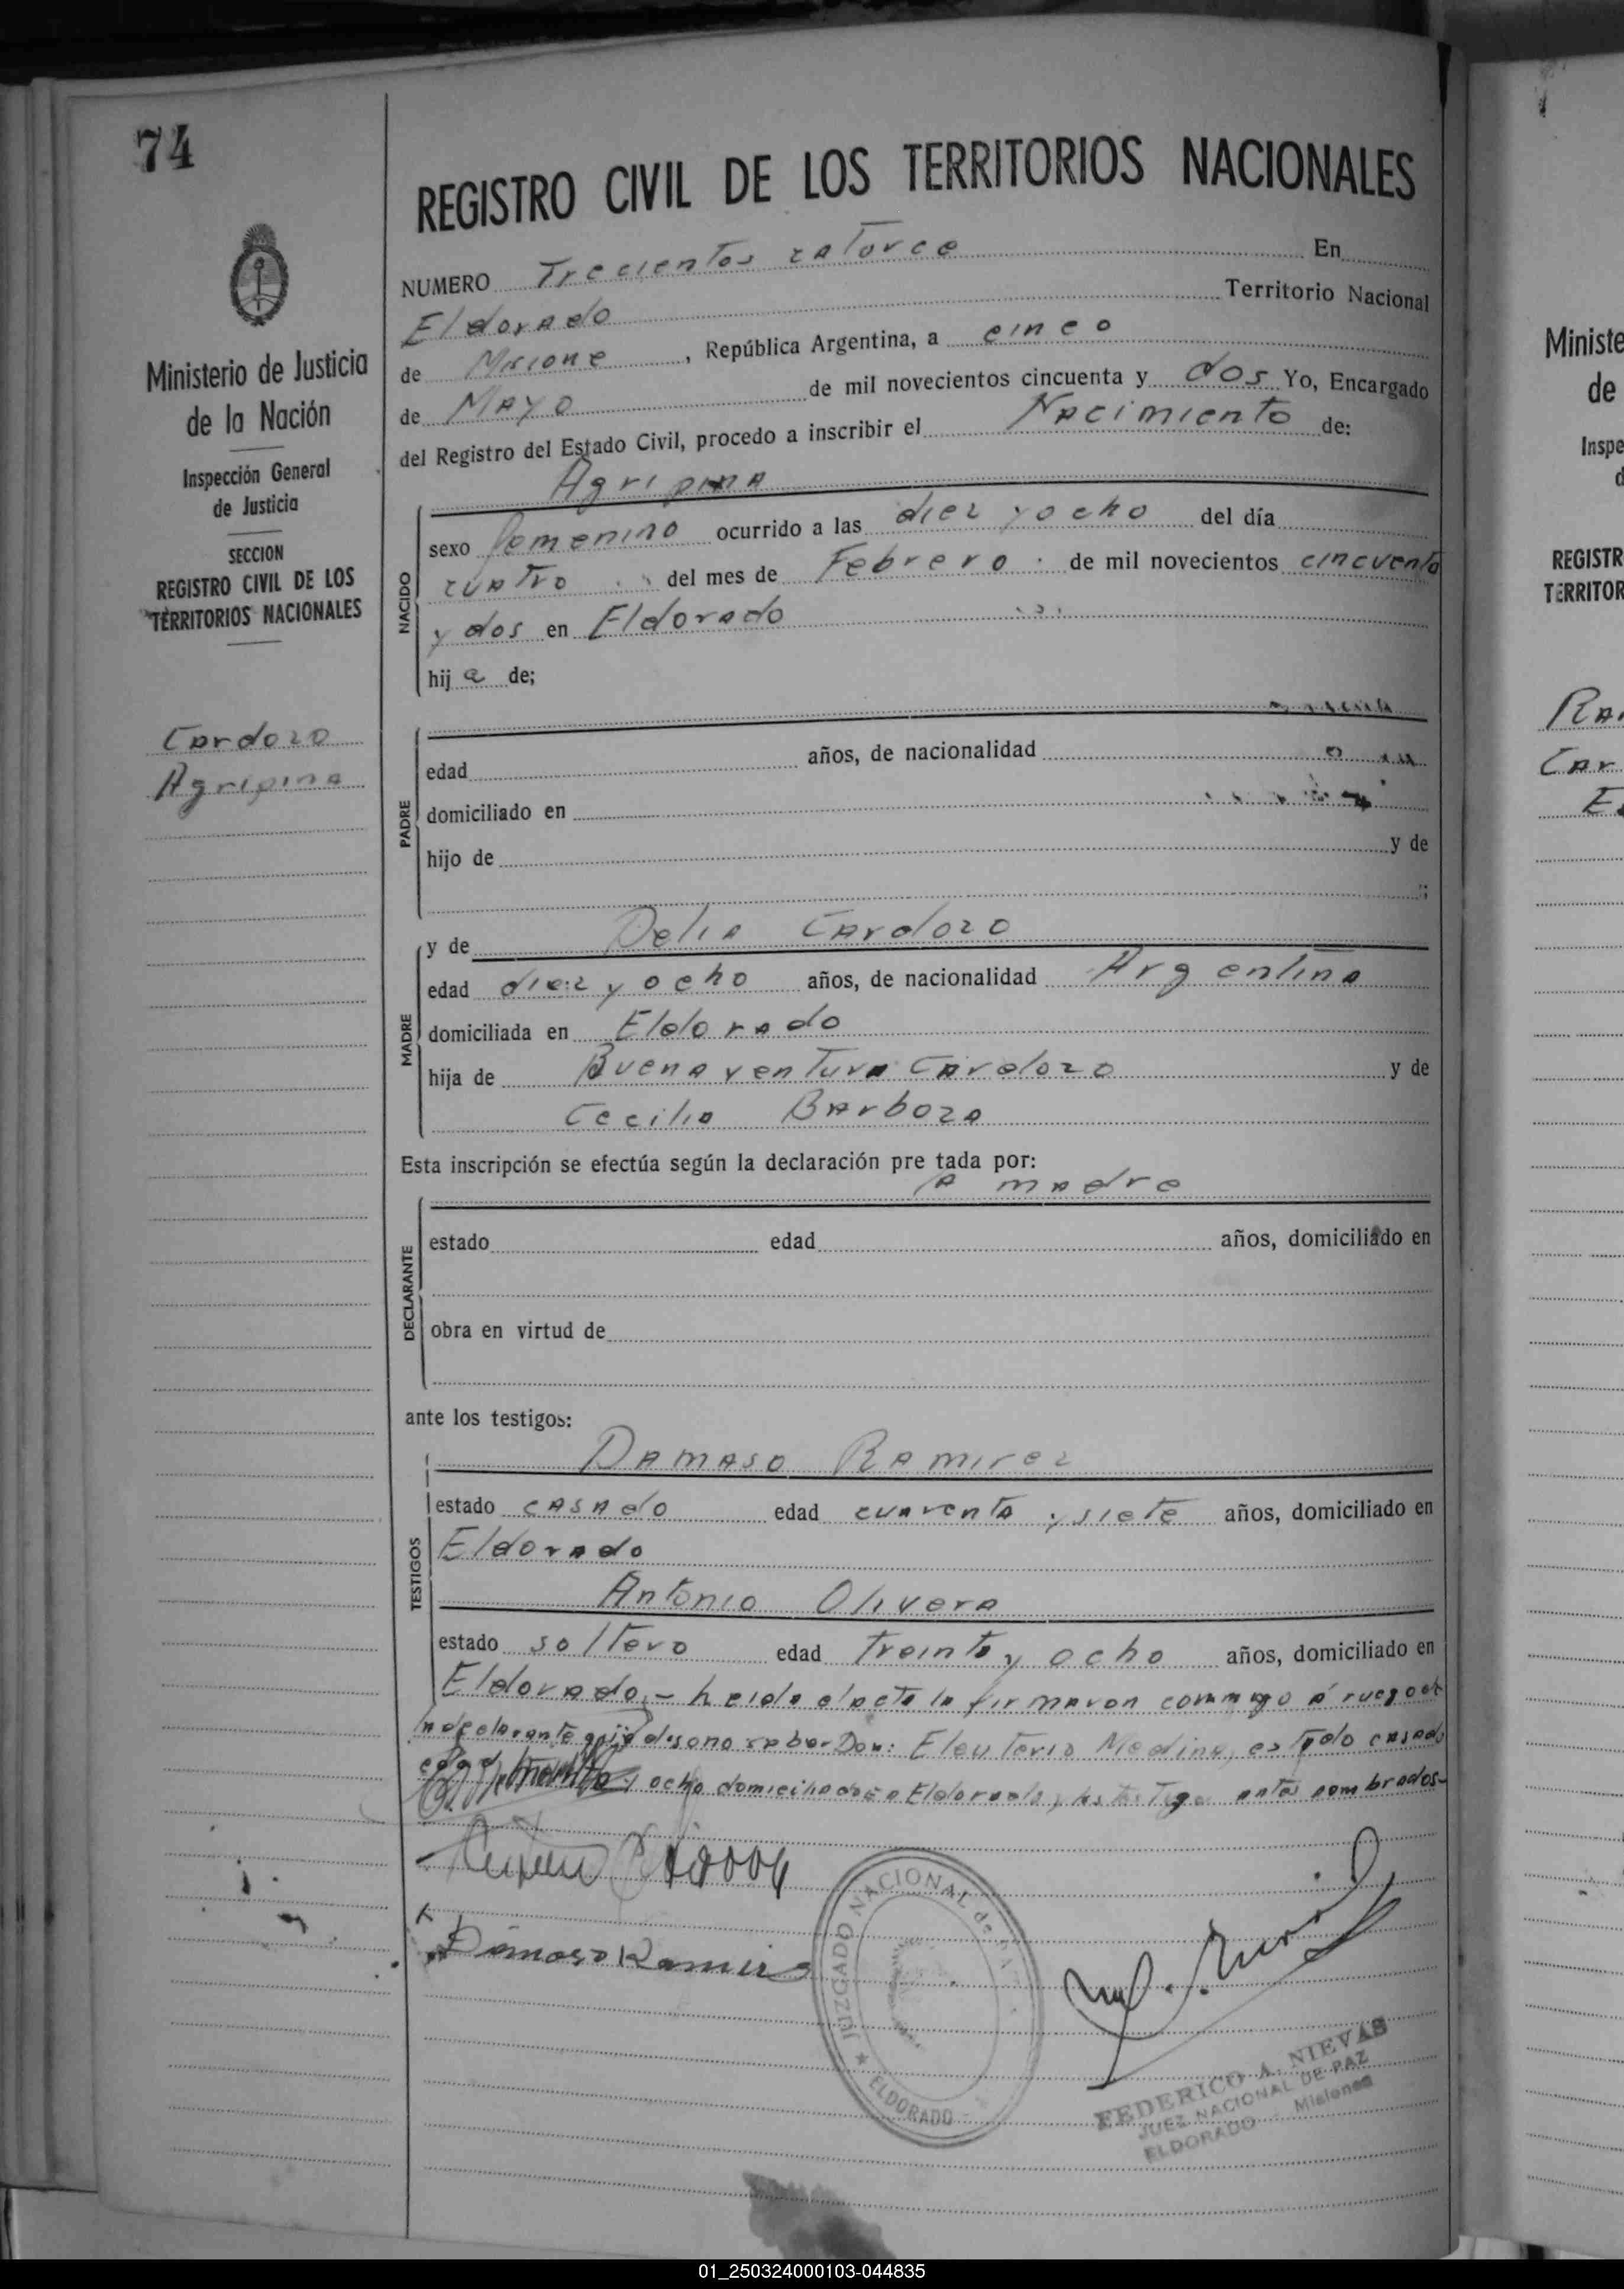 74
REGISTRO CIVIL DE LOS TERRITORIOS NACIONALES
NUMERO Trecientos catorce En
Eldorado Territorio Nacional
de Misione, República Argentina, a cinco
de Mayo de mil novecientos cincuenta y dos Yo, Encargado
del Registro del Estado Civil, procedo a inscribir el Nacimiento de:
Agripina
NACIDO
sexo femenino ocurrido a las diez y ocho del día
cuatro del mes de Febrero de mil novecientos cincuenta
y dos en Eldorado
hija de;
PADRE
edad años, de nacionalidad
domiciliado en
hijo de y de
MADRE
y de Delia Cardozo
edad diez y ocho años, de nacionalidad Argentina
domiciliada en Eldorado
hija de Buenaventura Cardozo y de
Cecilia Barboza
Esta inscripción se efectúa según la declaración pre tada por:
la madre
DECLARANTE
estado edad años, domiciliado en
obra en virtud de
ante los testigos:
TESTIGOS
Damaso Ramirez
estado casado edad cuarenta y siete años, domiciliado en
Eldorado
Antonio Olivera
estado soltero edad treinta y ocho años, domiciliado en
Eldorado,- heida el acta la firmaron conmigo á ruego de
la declarante Don: Eleuterio Medina, estado casado
edad y ocho domiciliado en Eldorado y los testigo antes nombrados-
Damaso Ramirez
JUZGADO NACIONAL de PAZ
★ ELDORADO
FEDERICO A. NIEVAS
JUEZ NACIONAL DE PAZ
ELDORADO - Misiones
Ministerio de Justicia
de la Nación
Inspección General
de Justicia
SECCION
REGISTRO CIVIL DE LOS
TERRITORIOS NACIONALES
Cardozo
Agripina
Ministe
de
Inspe
d
REGISTR
TERRITOR
Ra
Car
E
01_250324000103-044835